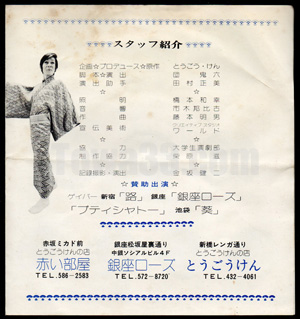 スタッフ紹介
企画☆プロデュース☆原作 とうごう・けん
脚本☆演出 団鬼六
演出助手 田村正美
照明 橋本和幸
音響 市木邦比古
作曲 藤本明男
宣伝美術 ワールド
協力 大学生演劇部
制作協力
記録撮影・演出 金坂健二
☆賛助出演☆
ゲイバー 新宿「路」 銀座「銀座ローズ」
「プティシャトー」 池袋「葵」
赤坂ミカド前
とうごうけんの店
赤い部屋
TEL.586-2583
銀座松坂屋裏通り
中銀ソシアルビル4F
銀座ローズ
TEL.572-8720
新橋レンガ通り
とうごうけんの店
とうごうけん
TEL.432-4061